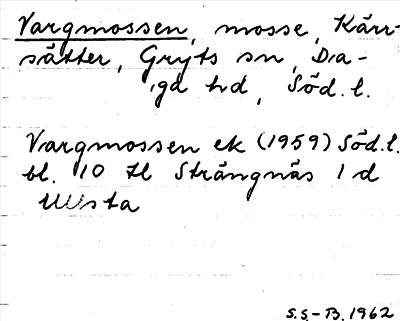 Vargmossen, mosse, Kärr-
sätter, Gryts sn, Da-
ga hd, Söd. l.
Vargmossen ek (1959) Söd. l.
bl. 10 tl Strängnäs 1 d
S.S-B. 1962